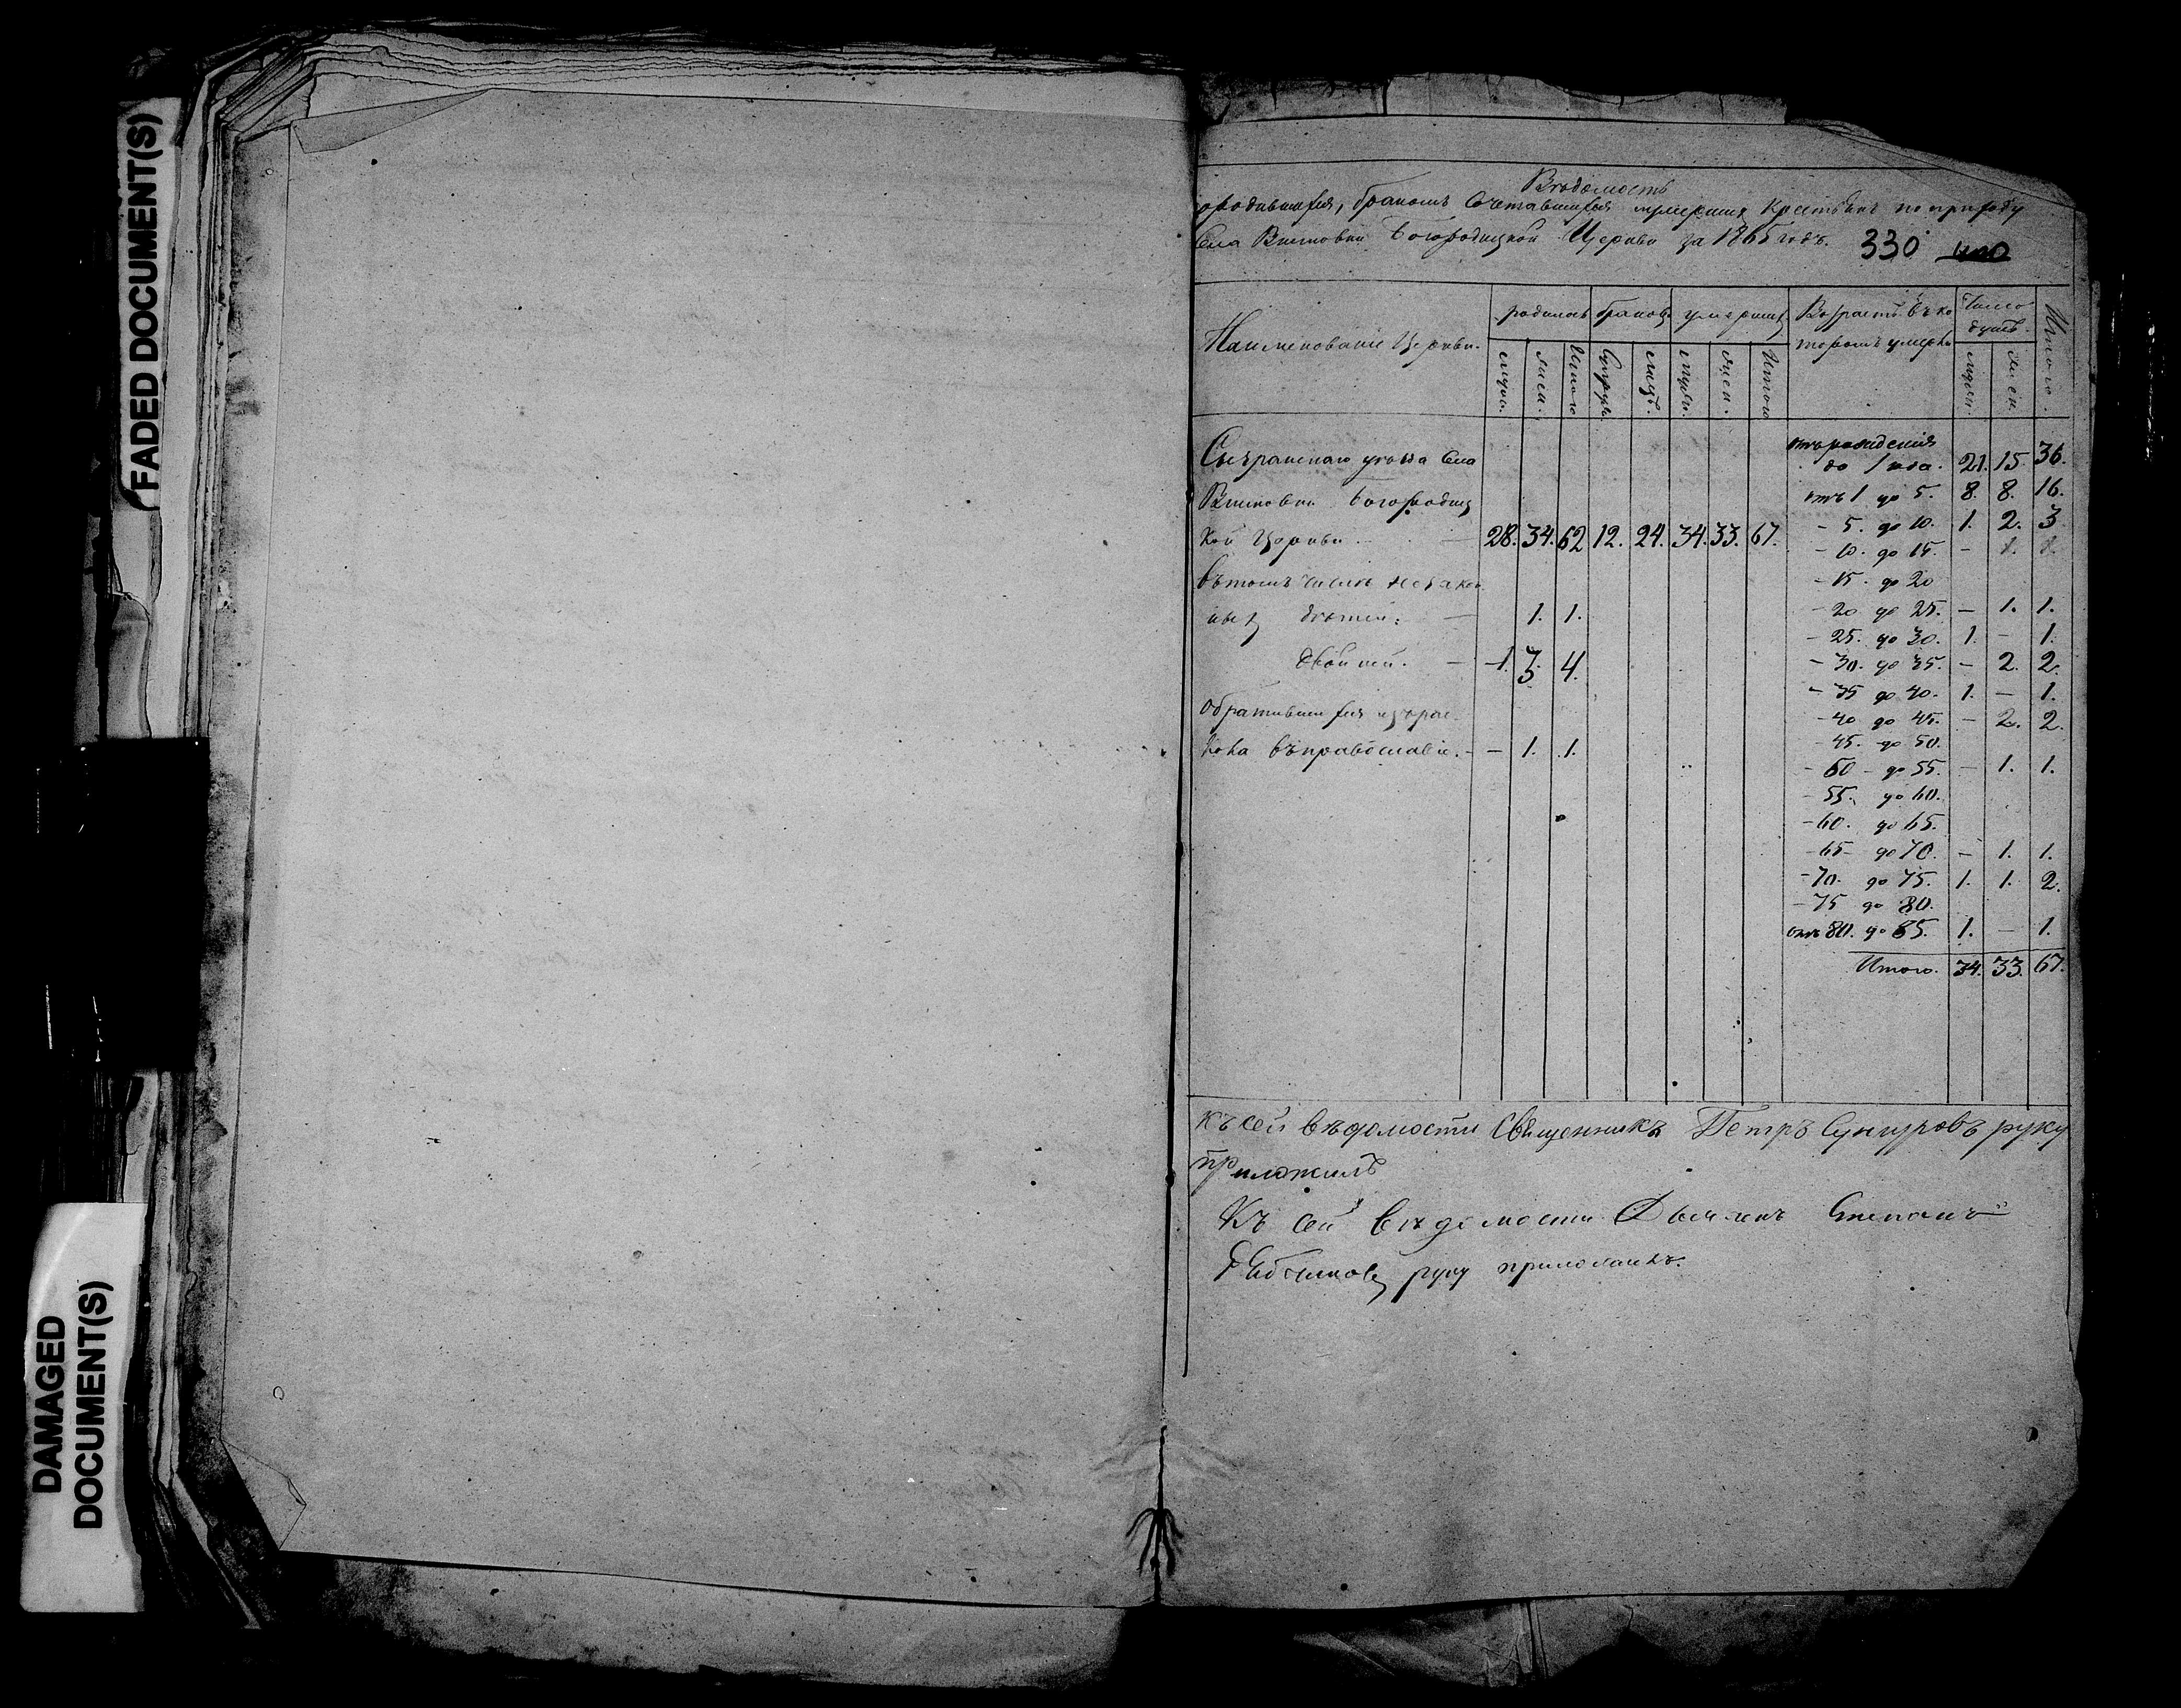 FADED DOCUMENT(S)
DAMAGED
DOCUMENT(S)
Вѣдомость
о родившихся, бракомъ сочетавшихся и умершихъ крестьянъ по приходу
Села Богородицкой Церкви за 1865 годъ. 330
Наименованіе Церкви. родилось браковъ умершихъ Возрастъ въ ко Число Итого.
торомъ умерли душъ.
мужс. женс. Итого Супруж. лицъ. мужс. женс. Итого мужс. женс.
Сызранскаго уѣзда Села отъ рожденія до 1 года. 21. 15. 36.
Богородиц отъ 1 до 5. 8. 8. 16.
кой Церкви 28. 34. 62 12. 24. 34. 33. 67. - 5. до 10. 1. 2. 3
- 10. до 15. - 1. 1.
въ томъ числѣ незакон - 15. до 20
ныхъ дѣтей: — 1. 1. - 20 до 25. - 1. 1.
- 25. до 30. 1. - 1.
двойней. — 1. 3. 4. - 30. до 35. - 2. 2.
- 35 до 40. 1. - 1.
Обратившихся изъ рас - 40 до 45. - 2. 2.
кола въ православіе. - - 1. 1. - 45. до 50.
- 50 - до 55. - 1. 1.
- 55. до 60.
- 60. до 65.
- 65 - до 70. - 1. 1.
- 70. до 75. 1. 1. 2.
- 75 до 80.
отъ 80. до 85. 1. - 1.
Итого. 34. 33. 67.
Къ сей вѣдомости Священникъ Петръ Сунгуровъ руку
приложилъ
Къ сей вѣдомости Дьячекъ Степанъ
руку приложилъ.